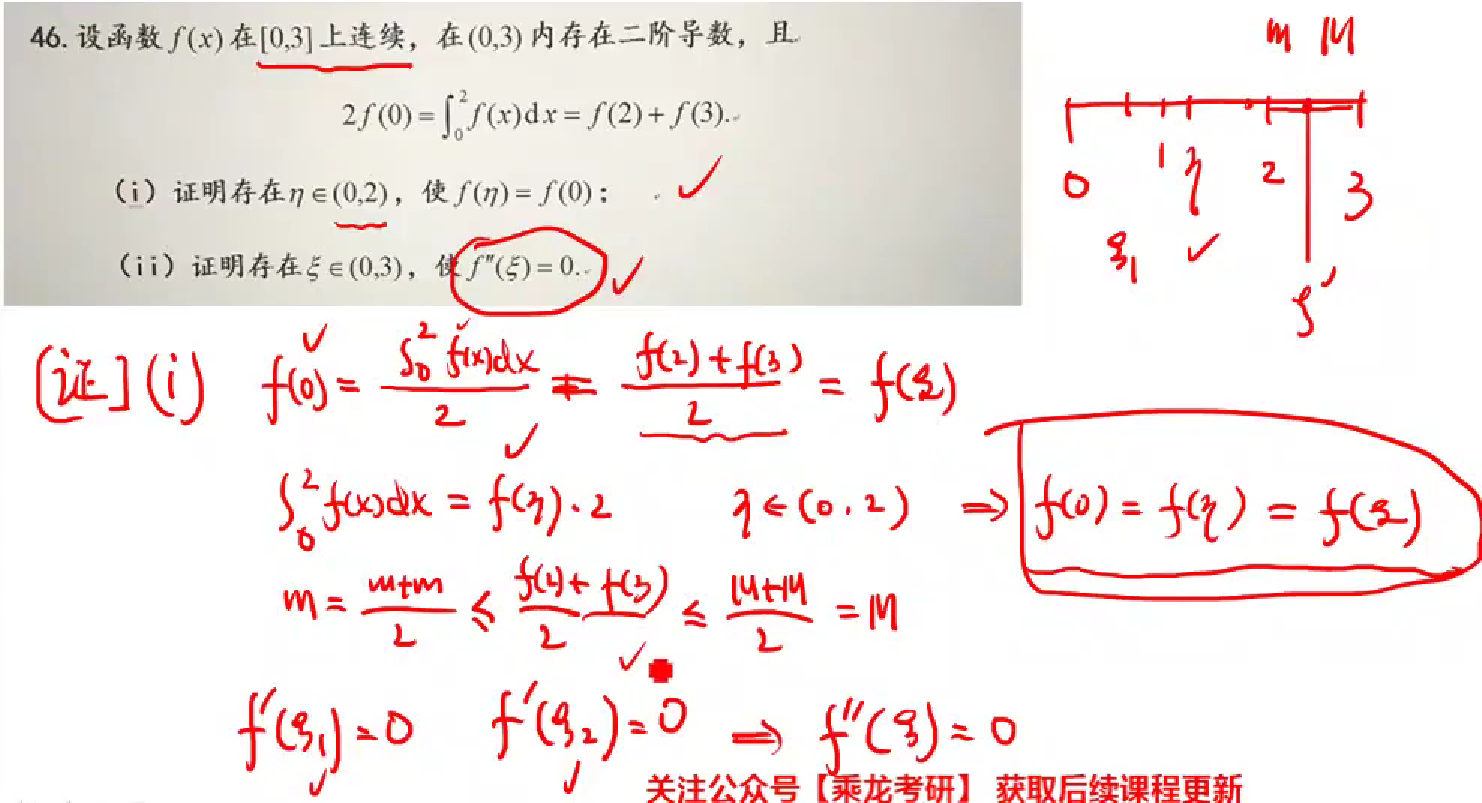 46. 设函数 f(x) 在 [0,3] 上连续，在 (0,3) 内存在二阶导数，且
2f(0) = ∫₀² f(x)dx = f(2) + f(3).
（i）证明存在 η ∈ (0,2)，使 f(η) = f(0)；
（ii）证明存在 ξ ∈ (0,3)，使 f″(ξ) = 0.
m M
0 1 η 2 3
ξ₁ ✓
[证] (i) f(0) = ∫₀² f(x)dx / 2 = (f(2) + f(3)) / 2 = f(ξ)
∫₀² f(x)dx = f(η)·2 η ∈ (0,2) ⇒ f(0) = f(η) = f(ξ)
m = (m+m)/2 ≤ (f(2) + f(3))/2 ≤ (M+M)/2 = M
f′(ξ₁) = 0 f′(ξ₂) = 0 ⇒ f″(ξ) = 0
关注公众号【乘龙考研】 获取后续课程更新